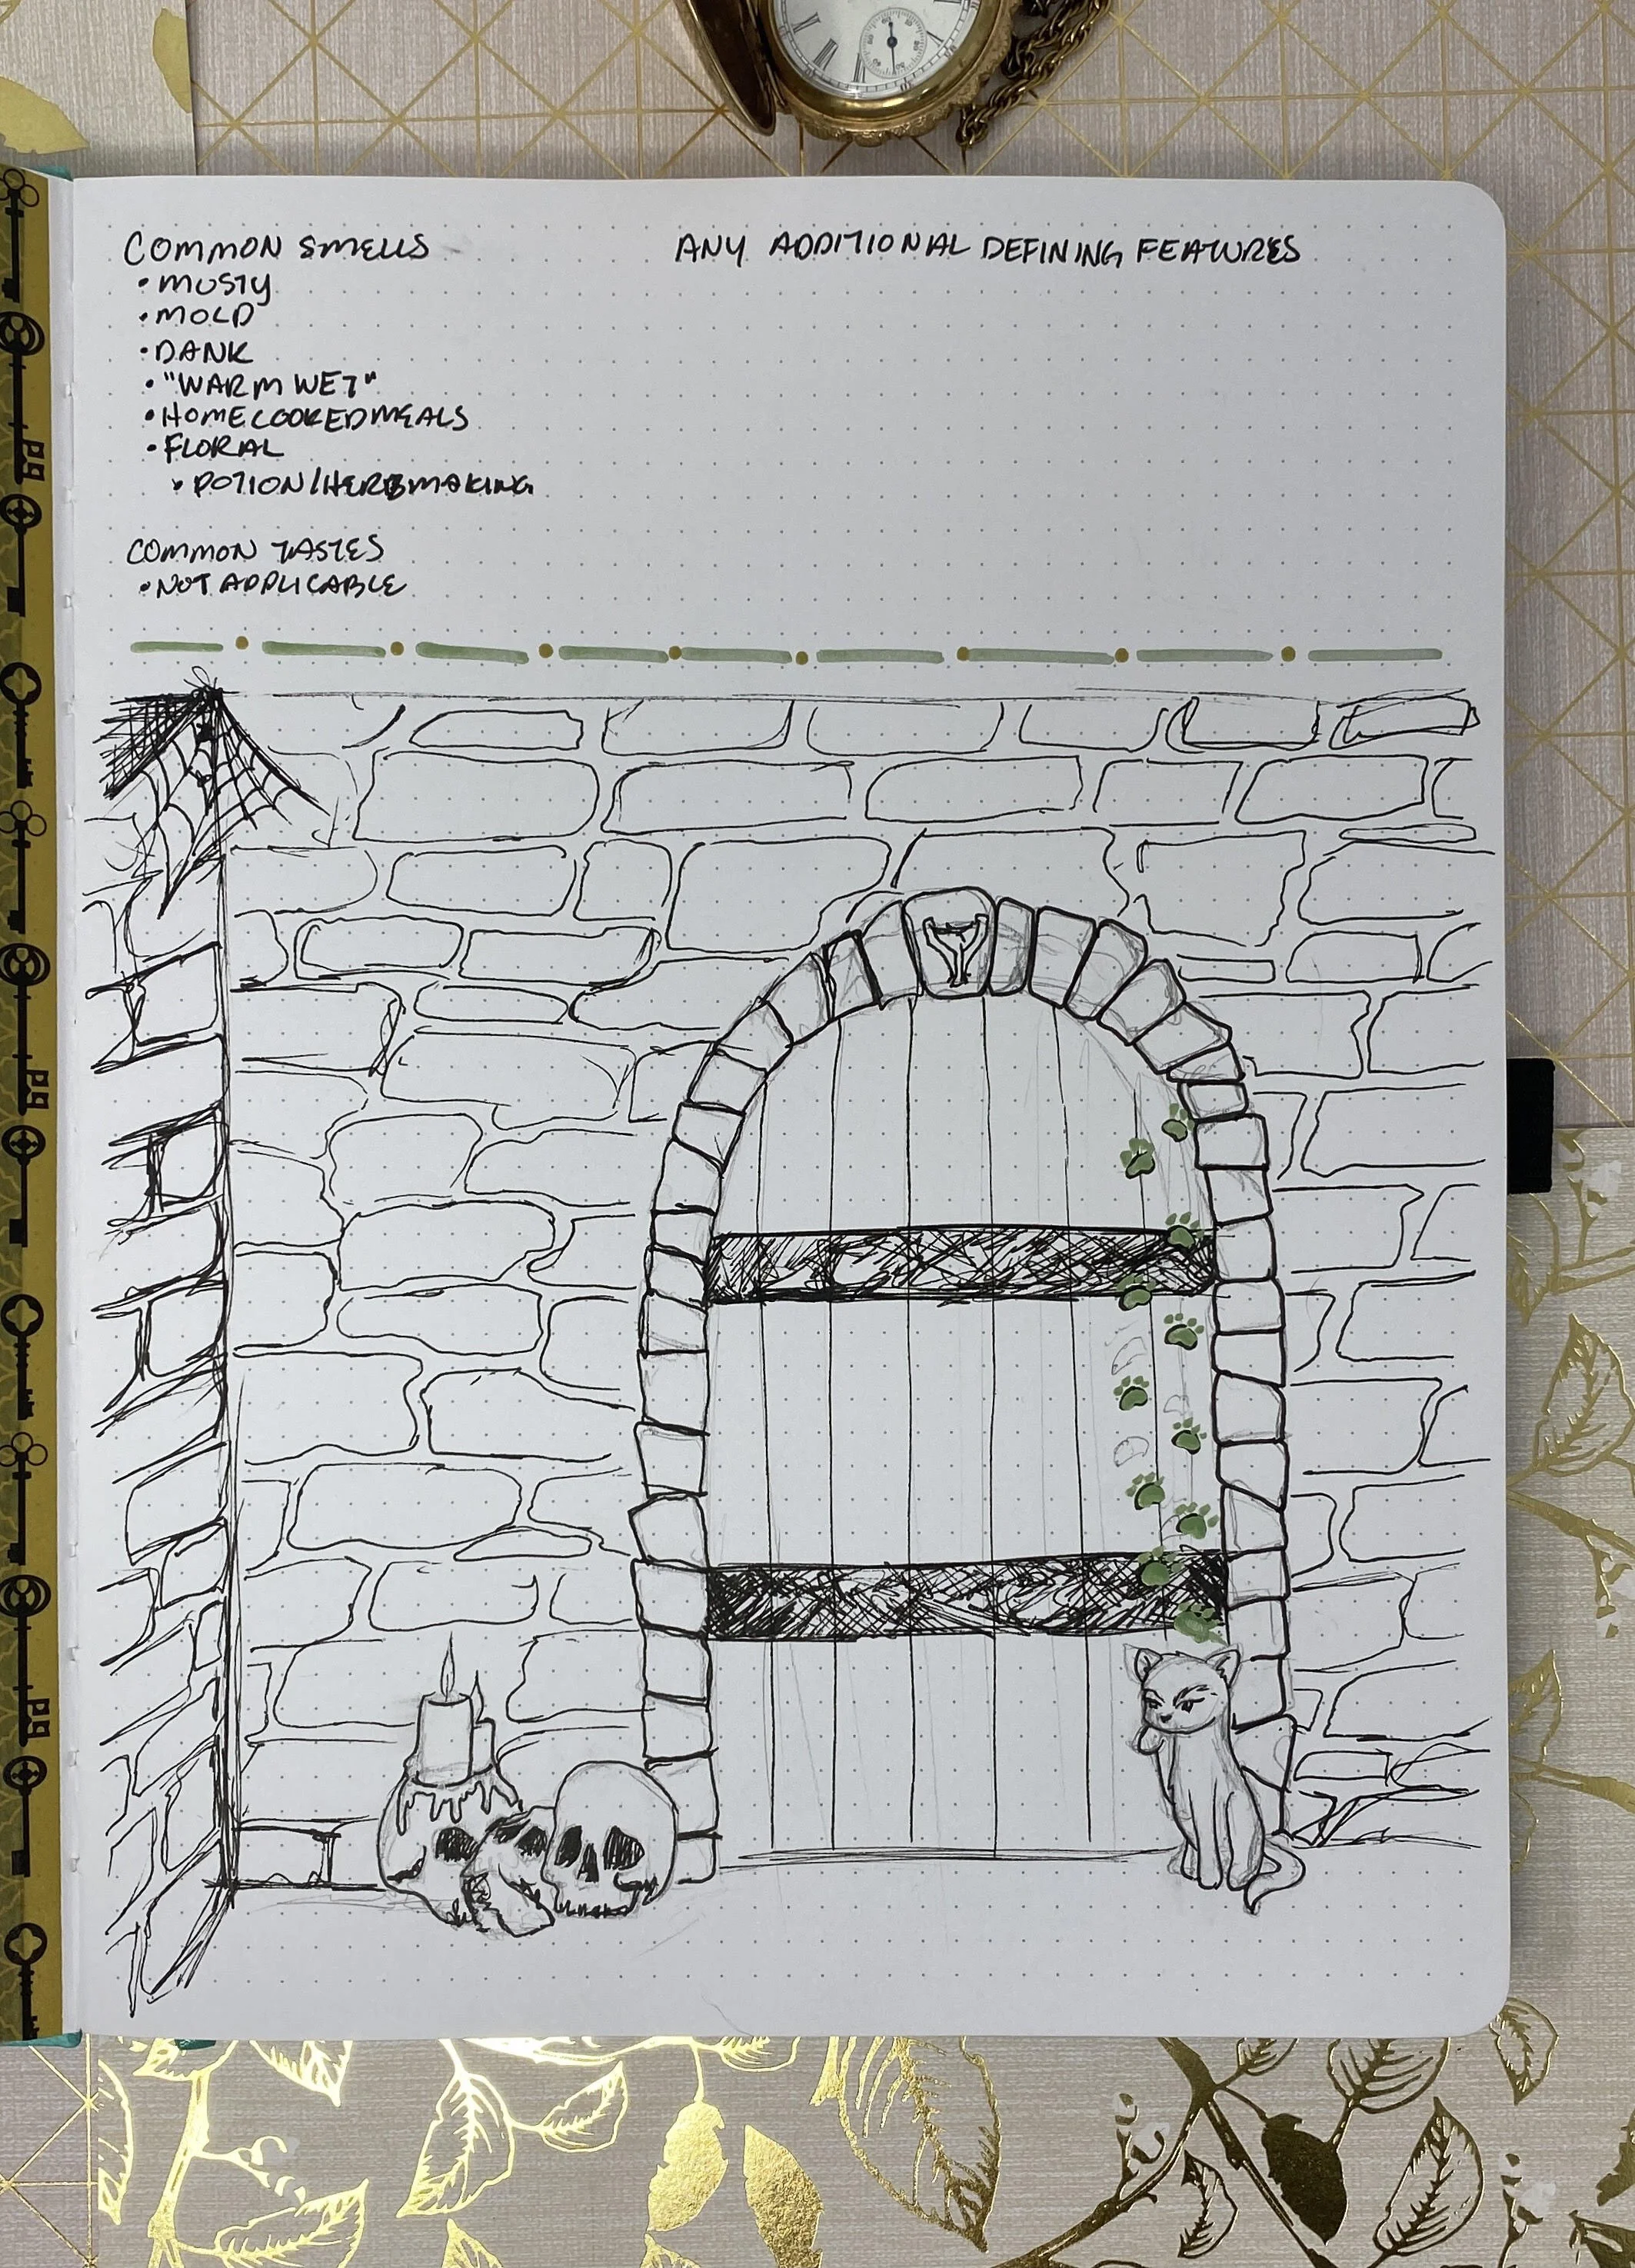 COMMON SMELLS
• MUSTY
• MOLD
• DANK
• "WARM WET"
• HOMECOOKED MEALS
• FLORAL
• POTION/HERBMAKING
COMMON TASTES
• NOT APPLICABLE
ANY ADDITIONAL DEFINING FEATURES